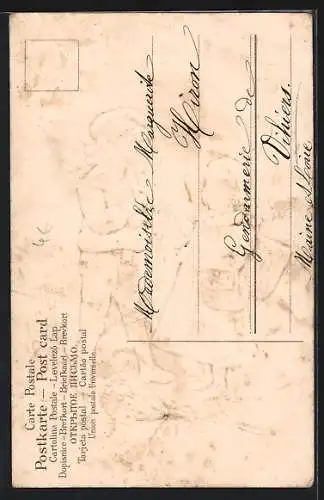 Carte Postale
Postkarte — Post card
Cartolina Postale - Levelező Lap
Dopisnice - Brefkort - Briefkaart - Brevkort
ОТКРЫТОЕ ПИСЬМО.
Tarjeta postal — Cartão postal
Union postale universelle.
Mademoiselle Marguerite
Gendarmerie de
Vihiers.
Maine & Loire